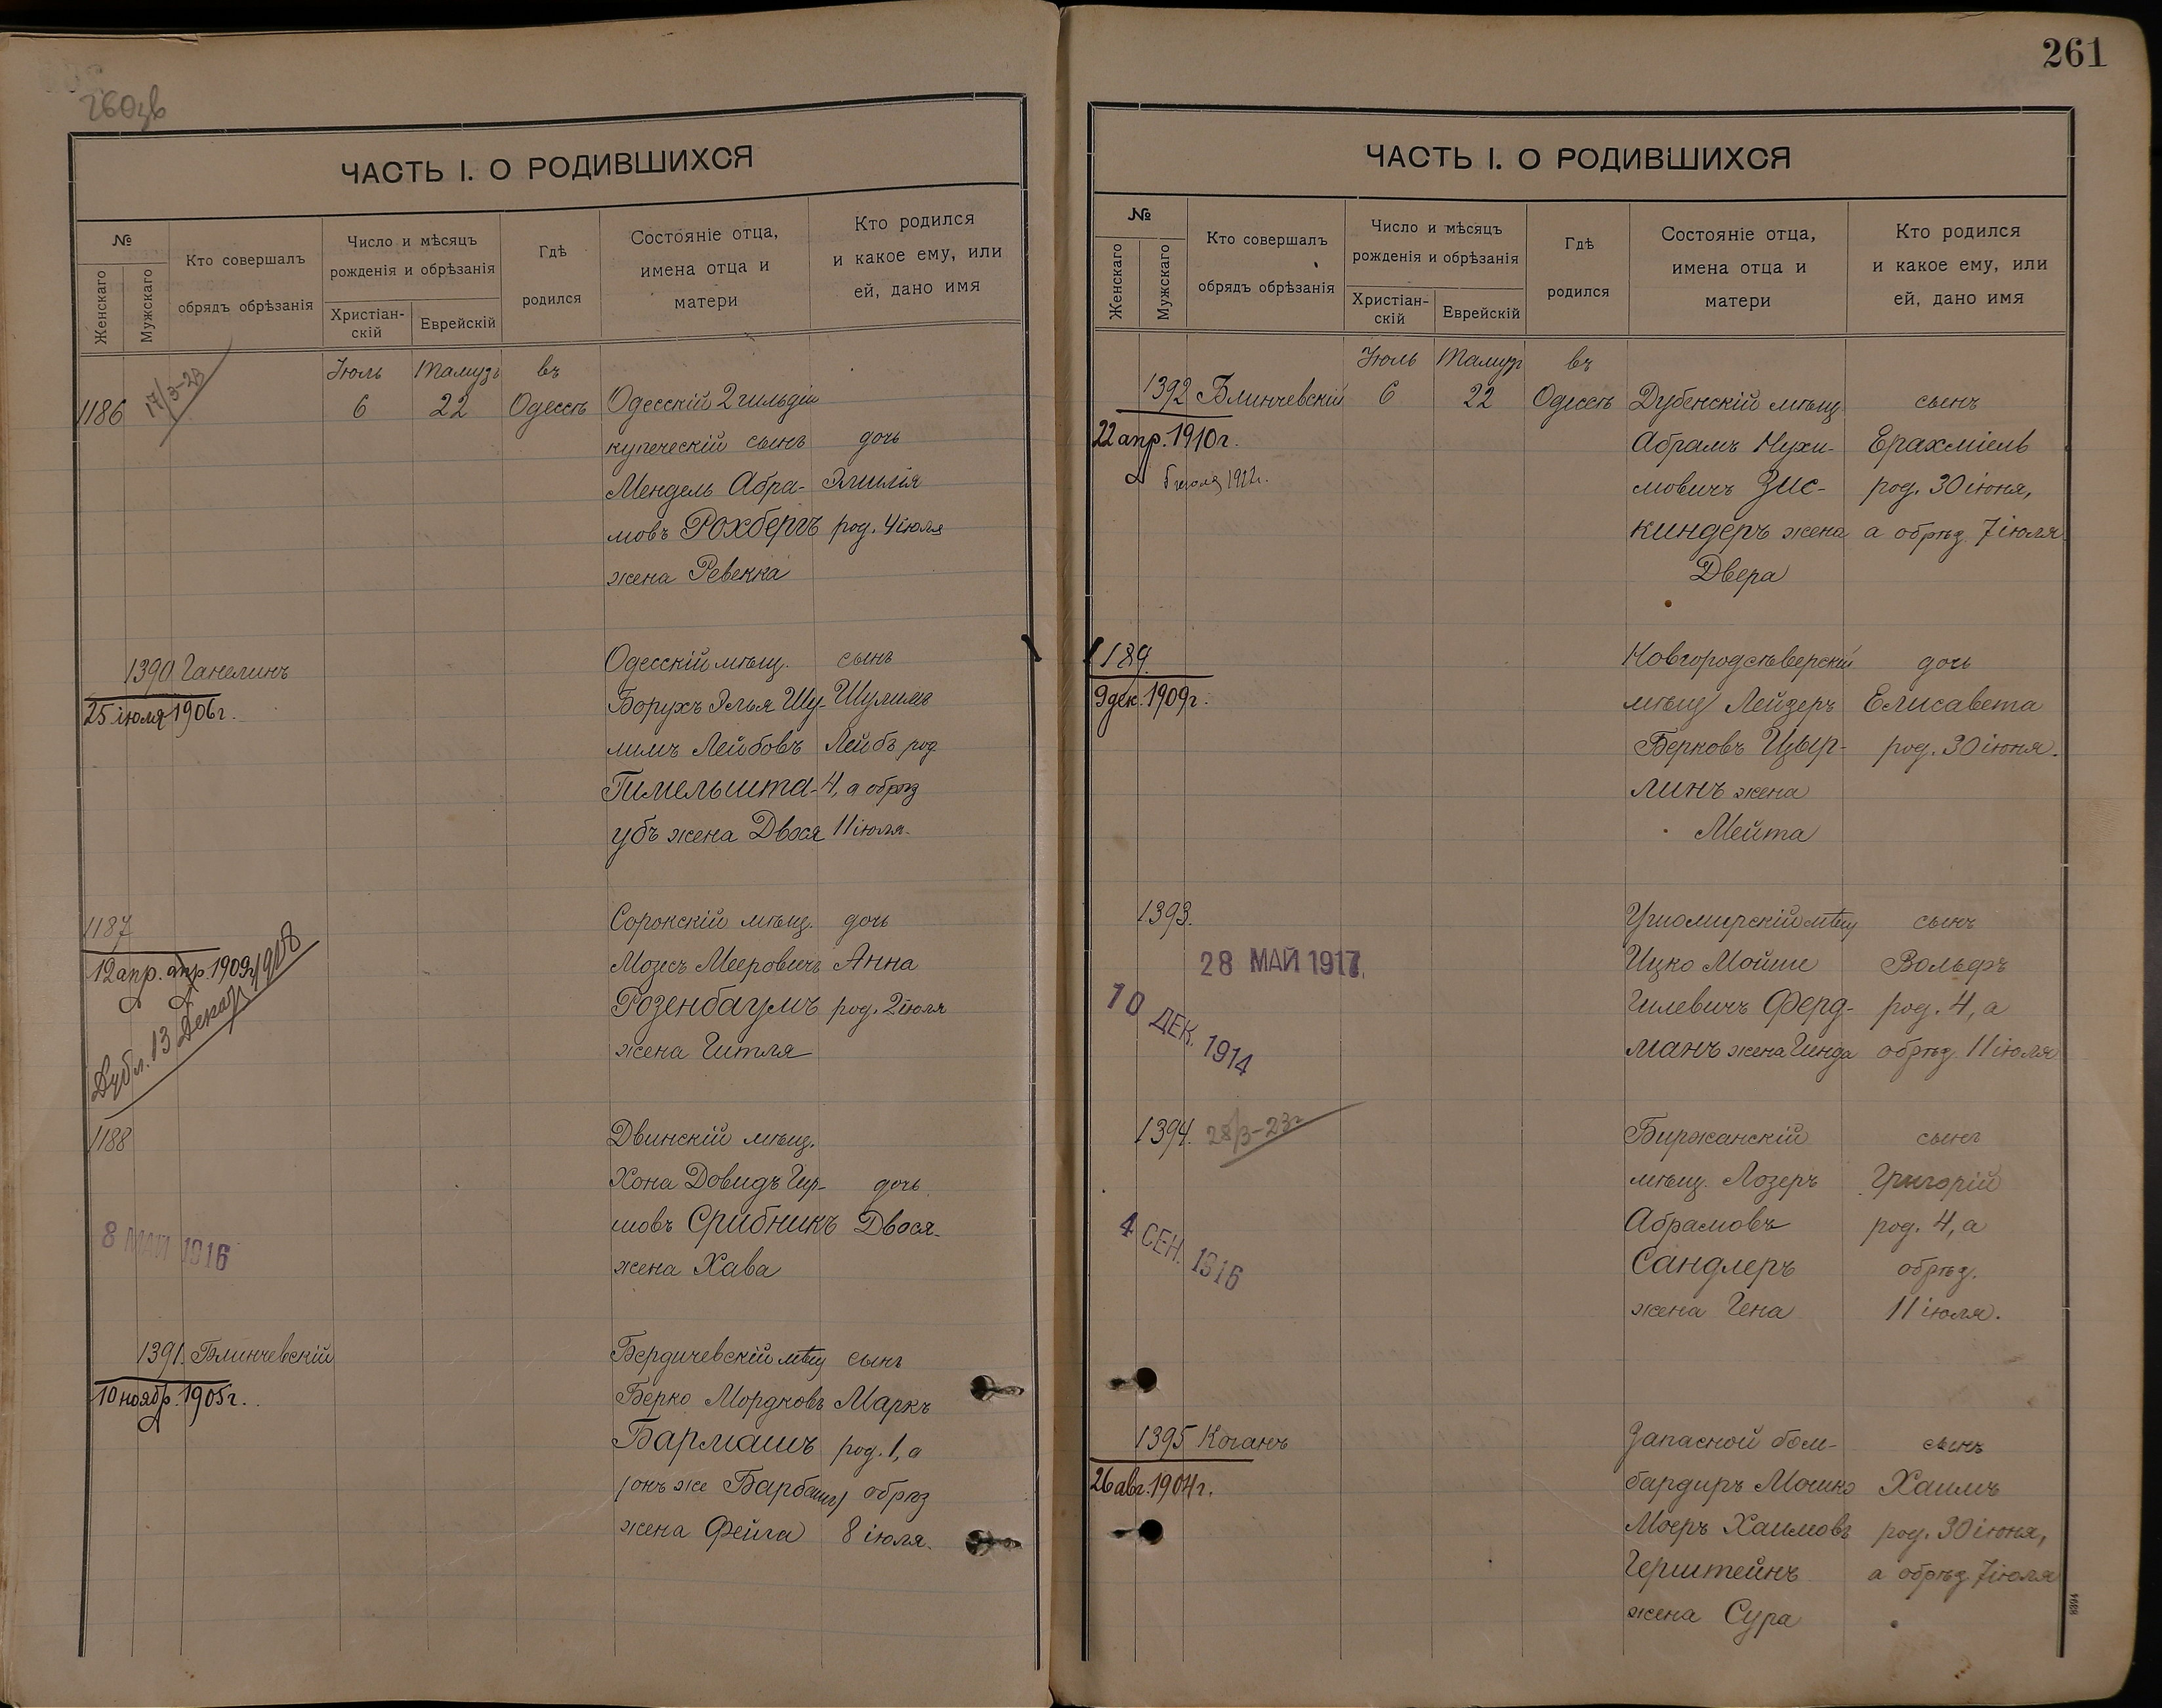 260зв
ЧАСТЬ I. О РОДИВШИХСЯ
№
Женскаго
Мужскаго
Кто совершалъ
обрядъ обрѣзанія
Число и мѣсяцъ
рожденія и обрѣзанія
Христіан-
скій
Еврейскій
Гдѣ
родился
Состояніе отца,
имена отца и
матери
Кто родился
и какое ему, или
ей, дано имя
Іюль Тамузъ въ
1186 17/3-23 6 22 Одессѣ Одесскій 2 гильдіи
купеческій сынъ дочь
Мендель Абра- Эмилія
мовъ Рохбергъ род. 4 іюля
жена Ревекка
1390 Ганелинъ Одесскій мѣщ. сынъ
25 іюля 1906 г. Борухъ Элья Шу- Шулимъ
лимъ Лейбовъ Лейбъ род.
Гимельшта- 4, а обрѣз
убъ жена Двося 11 іюля.
1187 Сорокскій мѣщ. дочь
12 апр. апр. 1909 Мозесъ Мееровичъ Анна
Дубл. 13 Декаб. 1908
Розенбаумъ род. 2 іюля
жена Гитля
1188 Двинскій мѣщ.
Хона Довидъ Гир- дочь
шовъ Срибникъ Двося
8 МАЙ 1916
жена Хава
1391 Блинчевскій Бердичевскій мѣщ сынъ
10 ноябр. 1905 г. Берко Мордковъ Маркъ
Бармашъ род. 1, а
(онъ же Барбашъ) обрѣз
жена Фейга 8 іюля.
261
ЧАСТЬ I. О РОДИВШИХСЯ
№
Женскаго
Мужскаго
Кто совершалъ
обрядъ обрѣзанія
Число и мѣсяцъ
рожденія и обрѣзанія
Христіан-
скій
Еврейскій
Гдѣ
родился
Состояніе отца,
имена отца и
матери
Кто родился
и какое ему, или
ей, дано имя
Іюль Тамузъ въ
1392 Блинчевскій 6 22 Одессѣ Дубенскій мѣщ. сынъ
22 апр. 1910 г. Абрамъ Нухи- Ерахміель
мовичъ Зис- род. 30 іюня,
киндеръ жена а обрѣз. 7 іюля
Двера
1189 Новгородсѣверскій дочь
9 дек. 1909 г. мѣщ Лейзеръ Елисавета
Берковъ Цыр- род. 30 іюня.
линъ жена
Мейта
1393. Ушомирскій мѣщ сынъ
28 МАЙ 1917
Ицко Мойше Вольфъ
10 ДЕК. 1914
Гилевичъ Ферд- род. 4, а
манъ жена Гинда обрѣз. 11 іюля
1394. 28/3-23 г Биржанскій сынъ
мѣщ. Лозеръ Григорій
4 СЕН. 1916
Абрамовъ род. 4, а
Сандлеръ обрѣз.
жена Гена 11 іюля.
1395 Коганъ Запасной бом- сынъ
26 авг. 1904 г. бардиръ Мошко Хаимъ
Моеръ Хаимовъ род. 30 іюня,
Герштейнъ а обрѣз. 7 іюля
жена Сура